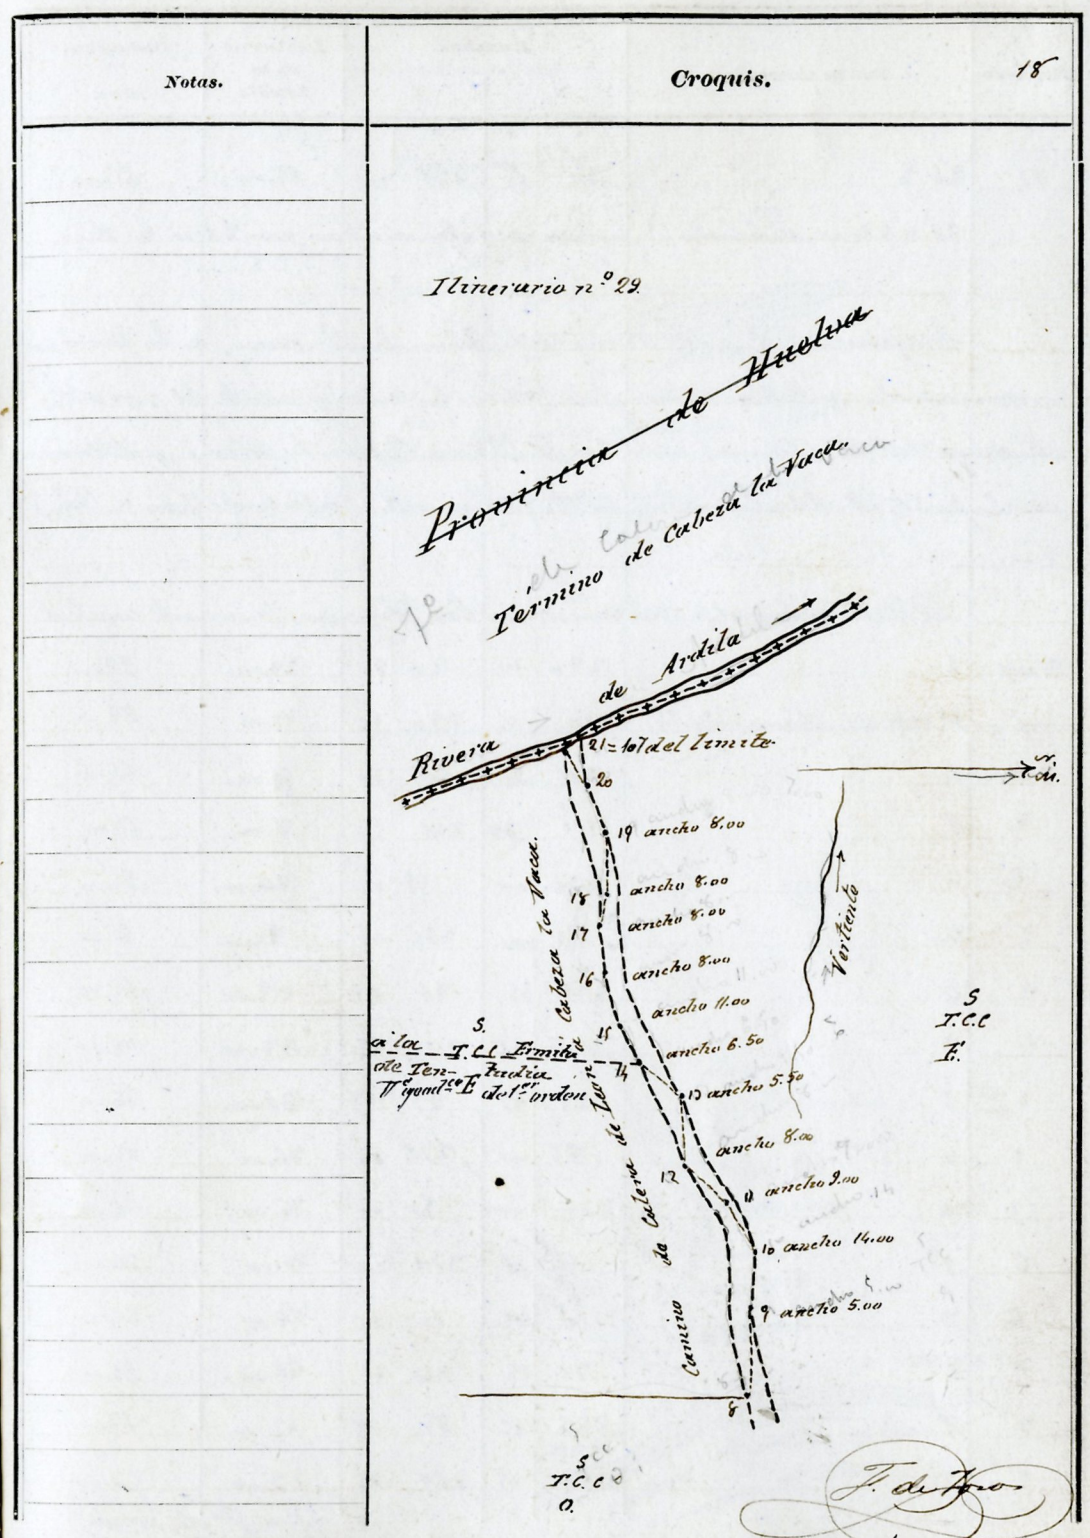 Notas.
Croquis.
18
Itinerario nº 29.
Provincia de Huelva
Término de Cabeza la Vaca.
Rivera de Ardila
21 = 107 del límite
20
19 ancho 8.00
18 ancho 8.00
17 ancho 8.00
16 ancho 8.00
ancho 11.00
15
ancho 6.50
14
13 ancho 5.50
ancho 8.00
12
11 ancho 9.00
10 ancho 14.00
9 ancho 5.00
8
Camino de Calera de Leon a Cabeza la Vaca.
Vertiente
S.
a la T.C.C Ermita
de Ten- tudia
E de 1er orden
S
T.C.C
E.
S
T.C.C
O.